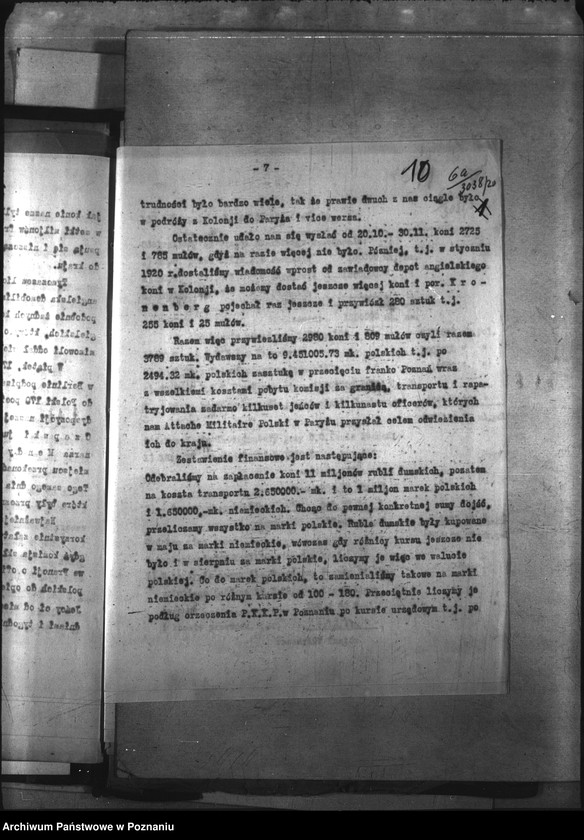 - 7 -
10
6a
3038/20
trudności było bardzo wiele, tak że prawie dwuch z nas ciągle było
w podróży z Kolonji do Paryża i vice versa.
Ostatecznie udało nam się wysłać od 20.10.- 30.11. koni 2725
i 785 mułów, gdyż na razie więcej nie było. Później, t.j. w styczniu
1920 r.dostaliśmy wiadomość wprost od zawiadowcy depot angielskiego
koni w Kolonji, że możemy dostać jeszcze więcej koni i por. K r o -
n e n b e r g pojechał raz jeszcze i przywiózł 280 sztuk t.j.
255 koni i 25 mułów.
Razem więc przywieźliśmy 2980 koni i 809 mułów czyli razem
3789 sztuk. Wydawszy na to 9.451005.73 mk. polskich t.j. po
2494.32 mk. polskich zasztukę w przecięciu franko Poznań wraz
z wszelkiemi kosztami pobytu komisji za granicą, transportu i rapa-
tryjowania zadarmo kilkuset jeńców i kilkunastu oficerów, których
nam Attache Militaire Polski w Paryżu przysłał celem odwiezienia
ich do kraju.
Zestawienie finansowe jest następujące:
Odebraliśmy na zapłacenie koni 11 miljonów rubli dumskich, pozatem
na koszta transportu 2.650000.- mk. i to 1 miljon marek polskich
i 1.650000,-mk. niemieckich. Chcąc do pewnej konkretnej sumy dojść,
przeliczamy wszystko na marki polskie. Ruble dumskie były kupowane
w maju za marki niemieckie, wówczas gdy różnicy kursu jeszcze nie
było i w sierpniu za marki polskie, liczymy je więc we walucie
polskiej. Co do marek polskich, to zamienialiśmy takowe na marki
niemieckie po różnym kursie od 100 - 180. Przeciętnie liczymy je
podług orzeczenia P.K.K.P.w Poznaniu po kursie urzędowym t.j. po
Archiwum Państwowe w Poznaniu